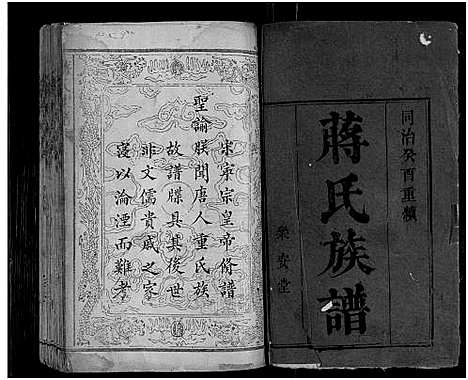 同治癸酉重鐫
蔣氏族譜
樂安堂
宋寧宗皇帝修譜
聖諭朕聞唐人重氏族
故譜牒具其後世
非文儒貴戚之家
寖以淪湮而難考